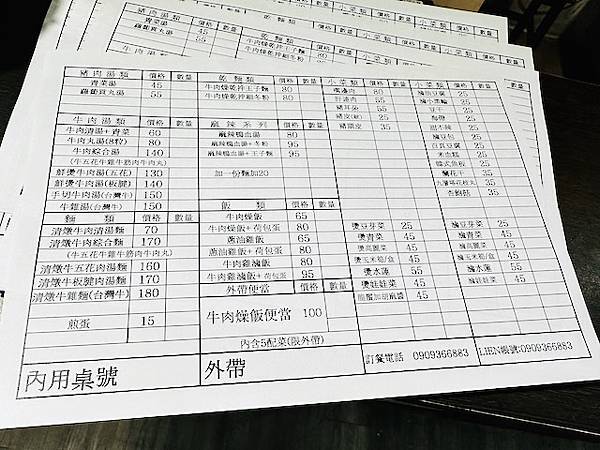 豬肉湯類 價格 數量 乾麵類 價格 數量 小菜類 價格 數量 小菜類 價格 數量
青菜湯 45 牛肉燥乾拌王子麵 80 嘴邊肉 80 滷油豆腐 25
蘿蔔貢丸湯 55 牛肉燥乾拌細冬粉 80 肝連肉 55 滷小黑輪 25
豬耳朵 55 豆干 25
牛肉湯類 價格 數量 麻辣系列 價格 數量 海帶 25
牛肉清湯+青菜 60 麻辣鴨血湯 80 豬頭皮 35 甜不辣 25
牛肉丸湯(8粒) 80 麻辣鴨血湯+冬粉 95 滷豆包 25
牛肉綜合湯 140 麻辣鴨血湯+王子麵 95 百頁豆腐 25
(牛五花牛雜牛筋肉牛肉丸) 米血糕 25
鮮燙牛肉湯(五花) 130 加一份麵加20 韓式魚板 25
鮮燙牛肉湯(板腱) 140 蘭花干 35
手切牛肉湯(台灣牛) 150
牛雜湯(台灣牛) 150 杏鮑菇 35
麵類 價格 數量 飯類 價格 數量
清燉牛肉清湯麵 70 牛肉燥飯 65
清燉牛肉綜合麵 170 牛肉燥飯+荷包蛋 80 燙豆芽菜 25 滷豆芽菜 25
(牛五花牛雜牛筋肉牛肉丸) 蔥油雞飯 65 燙青菜 45 滷青菜 45
清燉牛五花肉湯麵 160 蔥油雞飯+荷包蛋 80 燙高麗菜 45 滷高麗菜 45
清燉牛板腱肉湯麵 170 牛肉雞塊飯 80 燙玉米筍/盒 45 滷玉米筍/盒 45
清燉牛雜麵(台灣牛) 180 牛肉雞塊飯+荷包蛋 95 燙水蓮 55 滷水蓮 55
外帶便當 價格 數量 燙娃娃菜 45 滷娃娃菜 45
煎蛋 15 牛肉燥飯便當 100
內含5配菜(限外帶)
內用桌號 外帶 訂餐電話 0909366883 LIEN帳號:0909366883